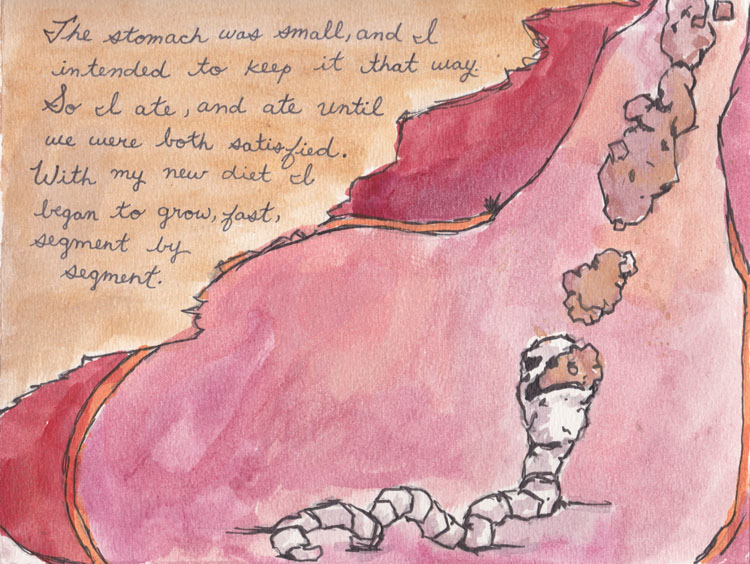 The stomach was small, and I
intended to keep it that way
So I ate, and ate until
we were both satisfied.
With my new diet I
began to grow, fast,
segment by
segment.